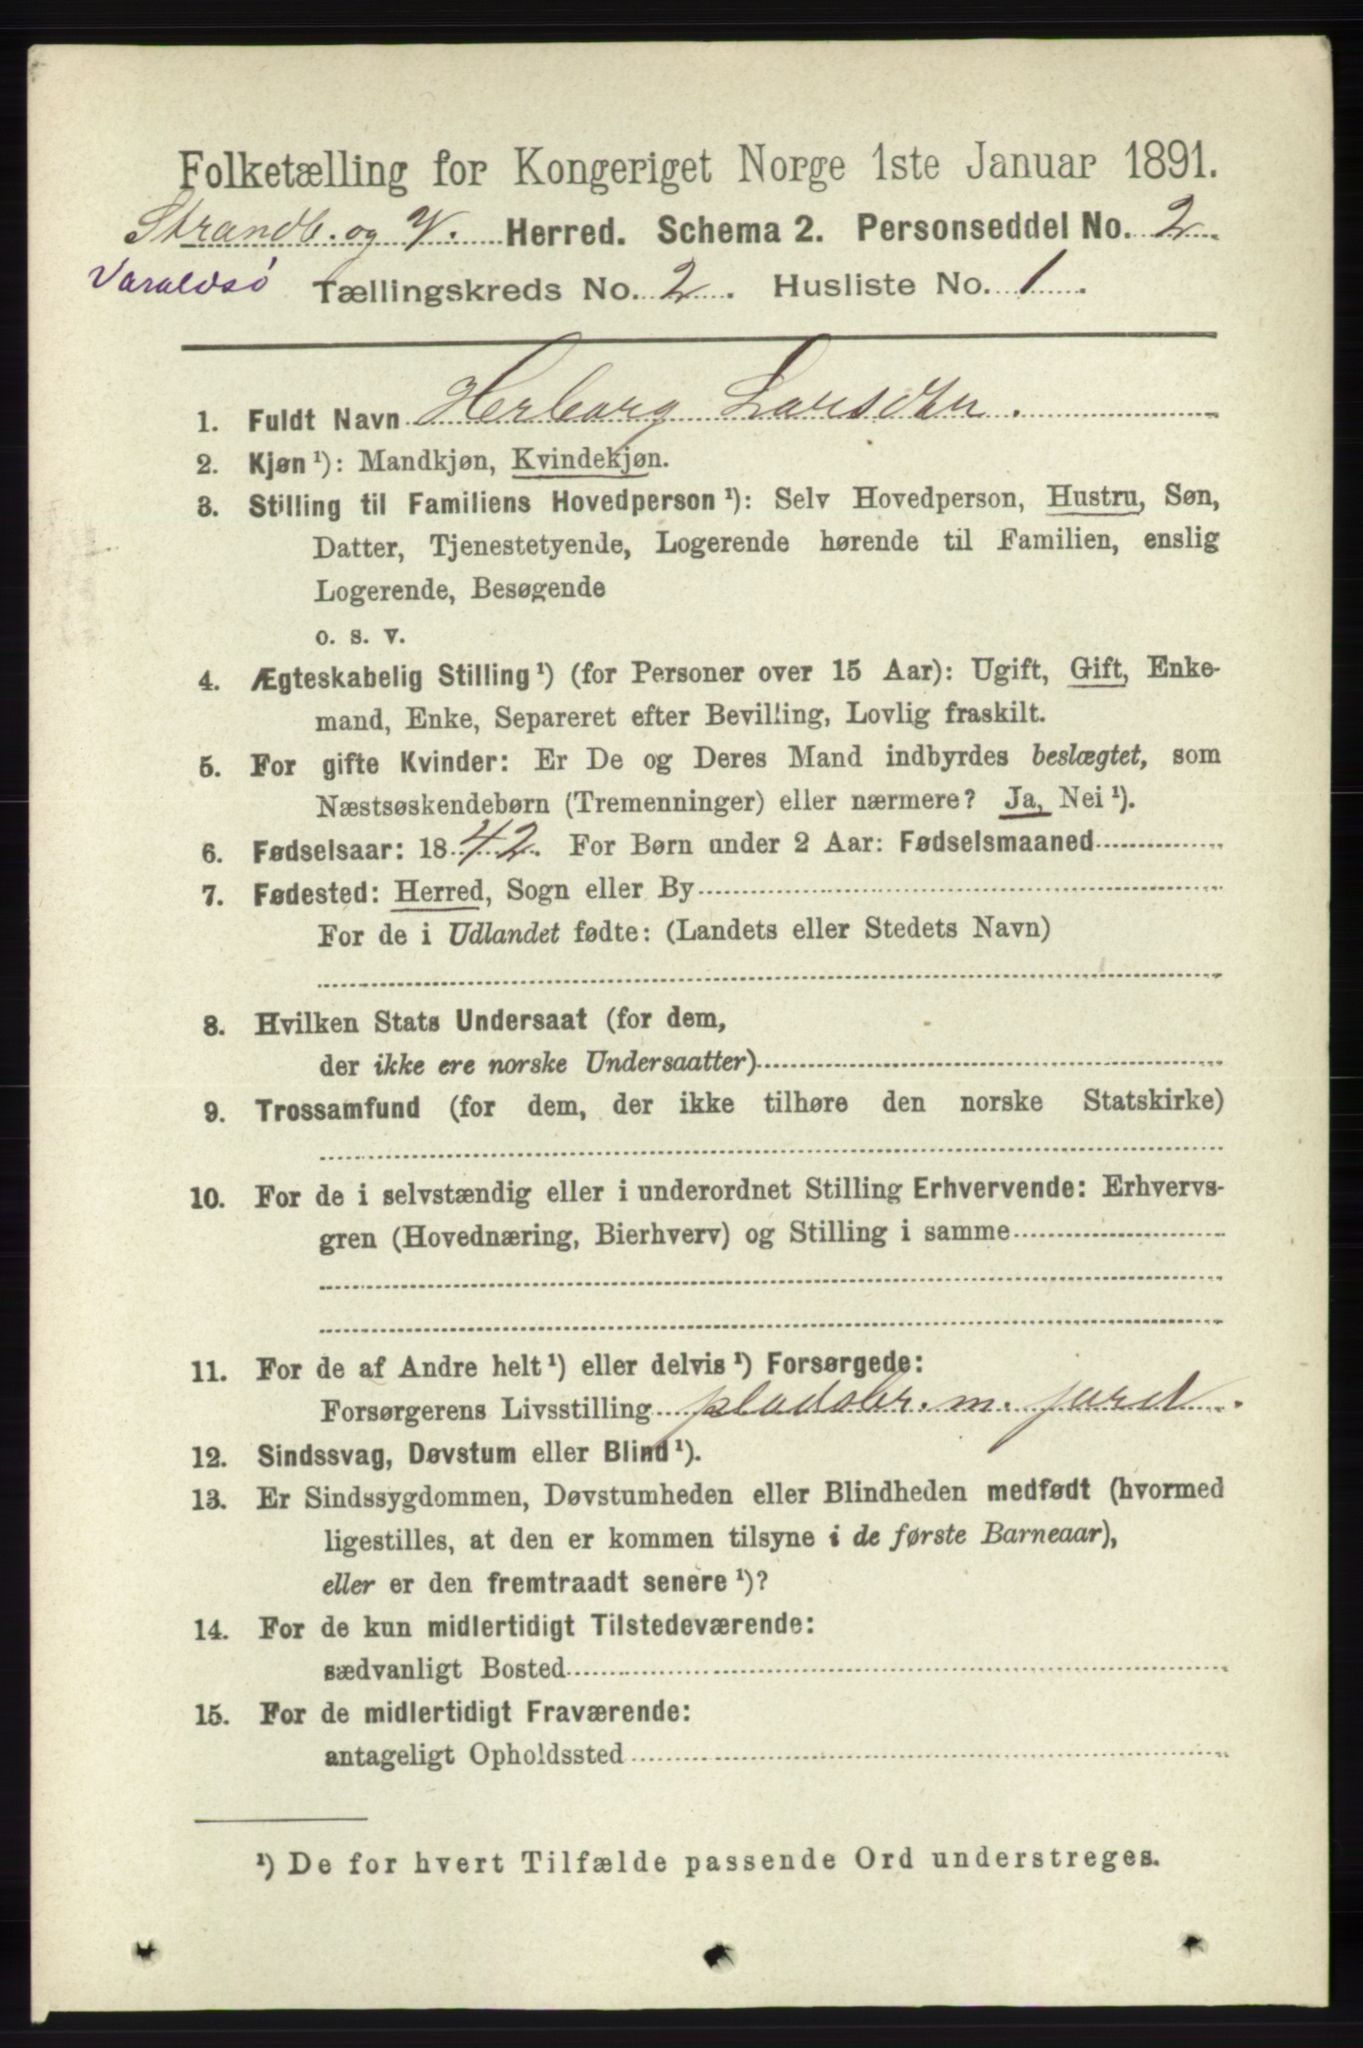 Folketælling for Kongeriget Norge 1ste Januar 1891.
Strandb. og V. Herred. Schema 2. Personseddel No. 2
Varaldsø Tællingskreds No. 2. Husliste No. 1
1. Fuldt Navn Herborg Larsdtr.
2. Kjøn ¹): Mandkjøn, Kvindekjøn.
3. Stilling til Familiens Hovedperson ¹): Selv Hovedperson, Hustru, Søn,
Datter, Tjenestetyende, Logerende hørende til Familien, enslig
Logerende, Besøgende
o. s. v.
4. Ægteskabelig Stilling ¹) (for Personer over 15 Aar): Ugift, Gift, Enke-
mand, Enke, Separeret efter Bevilling, Lovlig fraskilt.
5. For gifte Kvinder: Er De og Deres Mand indbyrdes beslægtet, som
Næstsøskendebørn (Tremenninger) eller nærmere? Ja, Nei ¹).
6. Fødselsaar: 1842. For Børn under 2 Aar: Fødselsmaaned
7. Fødested: Herred, Sogn eller By
For de i Udlandet fødte: (Landets eller Stedets Navn)
8. Hvilken Stats Undersaat (for dem,
der ikke ere norske Undersaatter)
9. Trossamfund (for dem, der ikke tilhøre den norske Statskirke)
10. For de i selvstændig eller i underordnet Stilling Erhvervende: Erhvervs-
gren (Hovednæring, Bierhverv) og Stilling i samme
11. For de af Andre helt ¹) eller delvis ¹) Forsørgede:
Forsørgerens Livsstilling pladsbr. m. jord.
12. Sindssvag, Døvstum eller Blind ¹).
13. Er Sindssygdommen, Døvstumheden eller Blindheden medfødt (hvormed
ligestilles, at den er kommen tilsyne i de første Barneaar),
eller er den fremtraadt senere ¹)?
14. For de kun midlertidigt Tilstedeværende:
sædvanligt Bosted
15. For de midlertidigt Fraværende:
antageligt Opholdssted
¹) De for hvert Tilfælde passende Ord understreges.